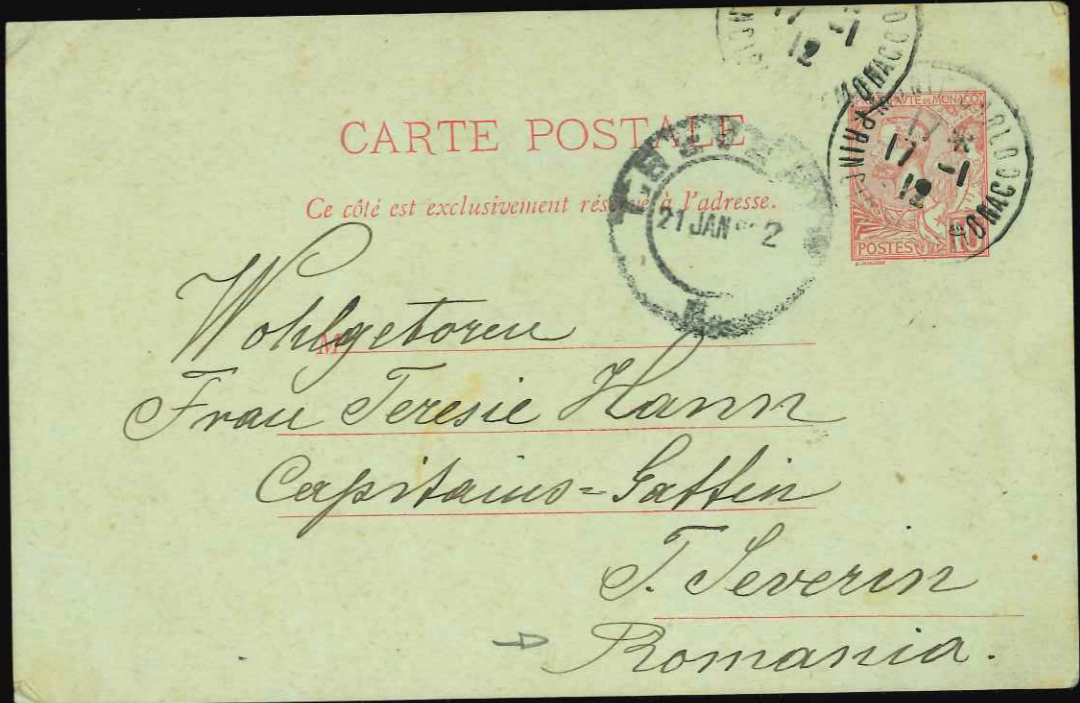 CARTE POSTALE
Ce côté est exclusivement réservé à l'adresse.
21 JAN 2
MONACO
17 -1
12
PRINCIPAUTE DE MONACO
POSTES
10
M
Wohlgeboren
Frau Teresie Hann
Capitains=Gattin
T. Severin
Romania.